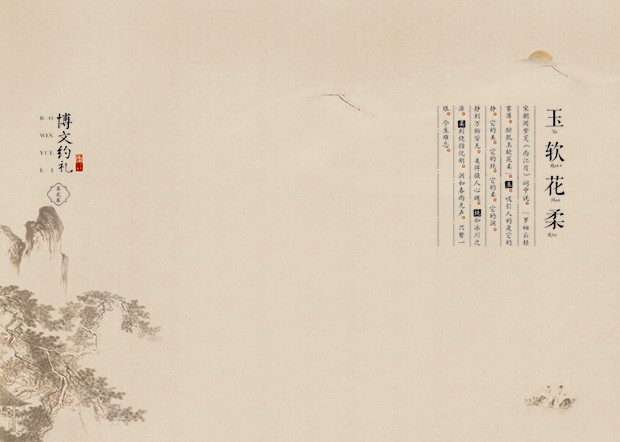 玉软花柔
Yu
Ruan
Hua
Rou
宋朝周紫芝《西江月》词中说,「罗袖云轻
雾薄。醉肌玉软花柔」。玉,吸引人的是它的
静。它的美。它的纯。它的柔。它的润。
静到万物皆无。美得摄人心魄。纯如冰川之
源。柔到绕指化刚。润如春雨无声。只瞥一
眼。今生难忘。
博文约礼
BO
WEN
YUE
LI